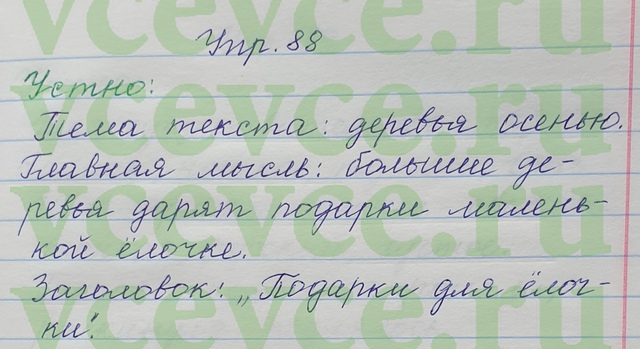 Упр. 88
Устно:
Тема текста: деревья осенью.
Главная мысль: большие де-
ревья дарят подарки малень-
кой ёлочке.
Заголовок: „Подарки для ёлоч-
ки".
vcevce.ru
vcevce.ru
vcevce.ru
vcevce.ru